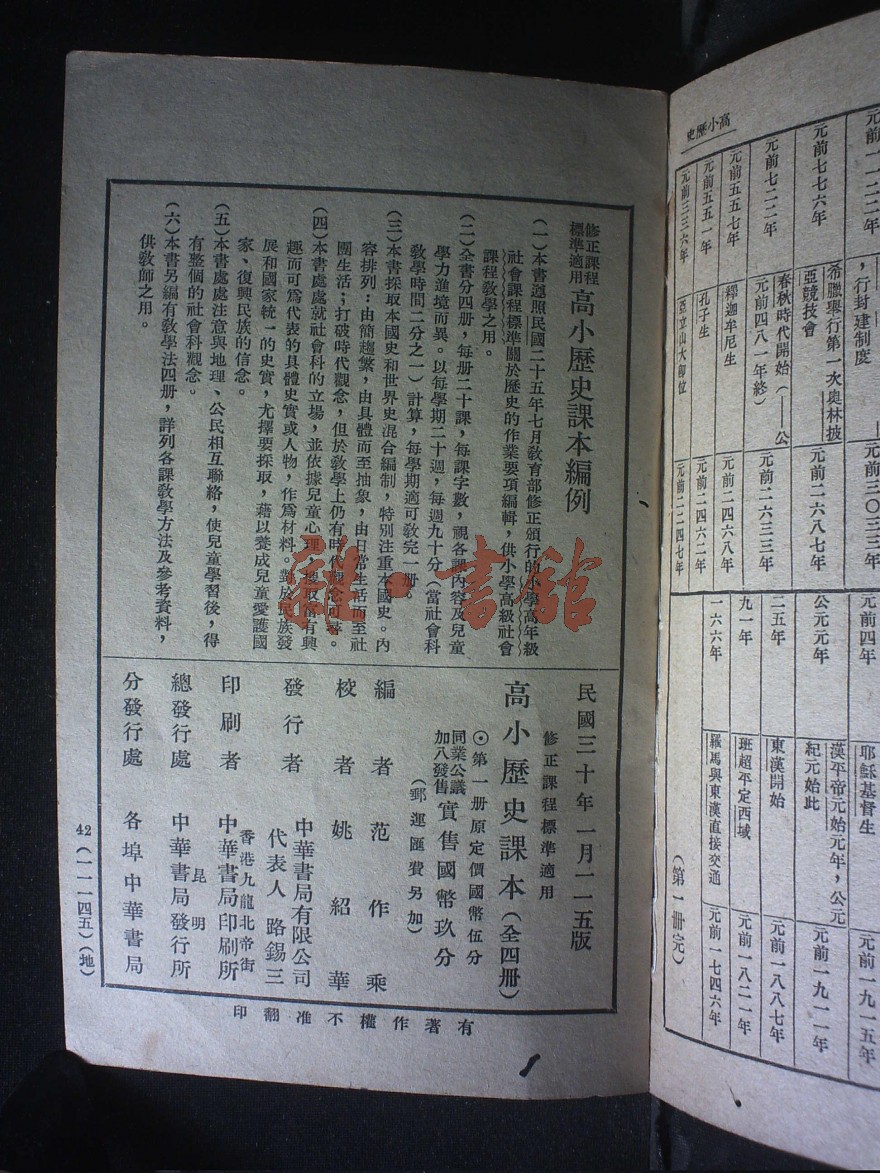 高小歷史
元前一一二二年
，行封建制度
元前三〇三三年
元前七七六年
希臘舉行第一次奧林披
亞競技會
元前二六八七年
元前七二二年
春秋時代開始（——公
元前四八一年終）
元前二六三三年
元前五五七年
釋迦牟尼生
元前二四六八年
元前五五一年
孔子生
元前二四六二年
元前三三六年
亞立山大卽位
元前二二四七年
元前四年
耶穌基督生
元前一九一五年
公元元年
漢平帝元始元年，公元
紀元始此
元前一九一一年
二五年
東漢開始
元前一八八七年
九一年
班超平定西域
元前一八二一年
一六六年
羅馬與東漢直接交通
元前一七四六年
（第一册完）
修正課程
標準適用
高小歷史課本編例
（一）本書遵照民國二十五年七月敎育部修正頒行的小學高年級
社會課程標準關於歷史的作業要項編輯，供小學高級社會
課程敎學之用。
（二）全書分四册，每册二十課，每課字數，視各課內容及兒童
學力進境而異。以每學期二十週，每週九十分（當社會科
敎學時間二分之一）計算，每學期適可敎完一册。
（三）本書採取本國史和世界史混合編制，特別注重本國史。內
容排列：由簡趨繁，由具體而至抽象，由日常生活而至社
團生活；打破時代觀念，但於敎學上仍有時代觀念可尋。
（四）本書處處就社會科的立場，並依據兒童心理，擇取富有興
趣而可爲代表的具體史實或人物，作爲材料。對於民族發
展和國家統一的史實，尤擇要採取，藉以養成兒童愛護國
家、復興民族的信念。
（五）本書處處注意與地理、公民相互聯絡，使兒童學習後，得
有整個的社會科觀念。
（六）本書另編有敎學法四册，詳列各課敎學方法及參考資料，
供敎師之用。
民國三十年一月一一五版
修正課程標準適用
高小歷史課本（全四册）
⊙第一册原定價國幣伍分
同業公議
加八發售
實售國幣玖分
（郵運匯費另加）
編者 范作乘
校者 姚紹華
發行者 中華書局有限公司
代表人 路錫三
印刷者 香港九龍北帝街
中華書局印刷所
總發行處 昆明
中華書局發行所
分發行處 各埠中華書局
有著作權不准翻印
42（一一一四五）（地）